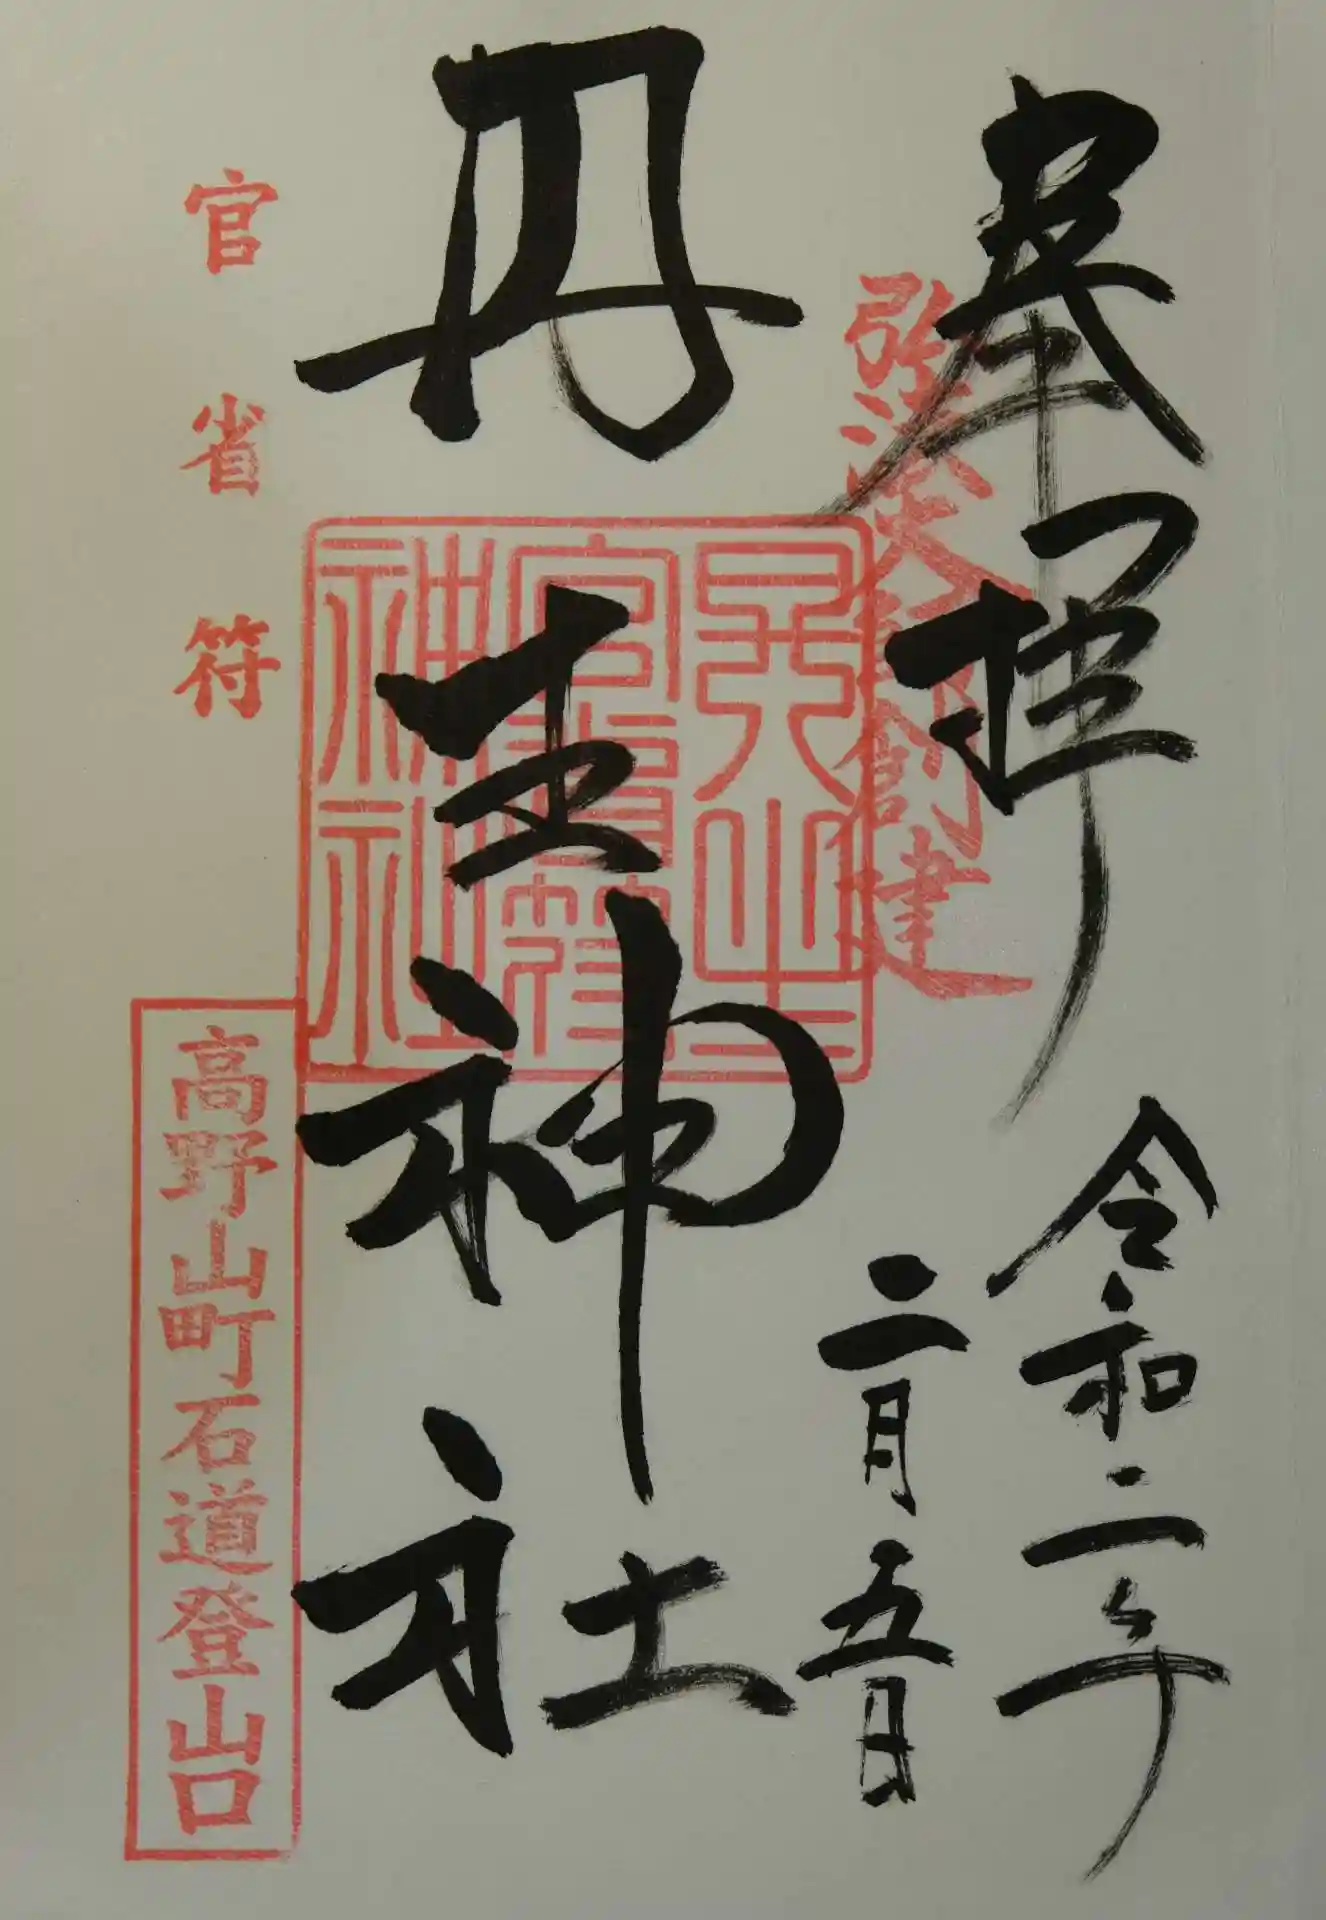 奉拝
弘法大師創建
令和二年
二月五日
丹生神社
九度山
官省符
神社
官省符
高野山町石道登山口